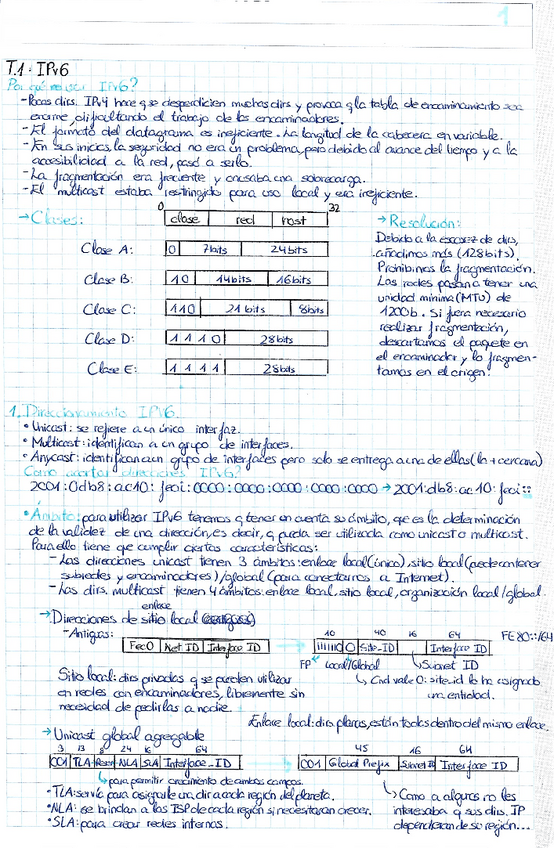 1
T.1: IPv6
Por qué IPv6?
-Pocas dirs. IPv4 hace q se desperdicien muchas dirs y provoca q la tabla de encaminamiento sea
enorme, dificultando el trabajo de los encaminadores.
-El formato del datagrama es ineficiente. La longitud de la cabecera en variable.
-En sus inicios, la seguridad no era un problema, pero debido al avance del tiempo y a la
accesibilidad a la red, pasó a serlo.
-La fragmentación era frecuente y causaba una sobrecarga.
-El multicast estaba restringido para uso local y era ineficiente.
→Clases:
0 32
clase red host
Clase A: 0 7bits 24bits
Clase B: 10 14bits 16bits
Clase C: 110 21 bits 8bits
Clase D: 1110 28bits
Clase E: 1111 28bits
→Resolución:
Debido a la escasez de dirs,
añadimos más (128bits).
Prohibimos la fragmentación.
Las redes pasan a tener una
unidad mínima (MTU) de
1200b. Si fuera necesario
realizar fragmentación,
descartamos el paquete en
el encaminador y lo fragmen-
tamos en el origen.
1. Direccionamiento IPv6.
•Unicast: se refiere a un único interfaz.
•Multicast: identifican a un grupo de interfaces.
•Anycast: identifican un grupo de interfaces pero solo se entrega a una de ellas (la + cercana)
Como acortar direcciones IPv6?
2001:0db8:ac10:fe01:0000:0000:0000:0000 → 2001:db8:ac10:fe01::
•Ámbito: para utilizar IPv6 tenemos q tener en cuenta su ámbito, que es la determinación
de la validez de una dirección, es decir, q pueda ser utilizada como unicast o multicast.
Para ello tiene que cumplir ciertas características:
-Las direcciones unicast tienen 3 ámbitos: enlace local (único), sitio local (puede contener
subredes y encaminadores) / global (para conectarnos a Internet).
-Las dirs. multicast tienen 4 ámbitos: enlace local, sitio local, organización local / global.
enlace
→Direcciones de sitio local
-Antigas:
Fec0 Net ID Interface ID
10 40 16 64
Site-ID Interface ID
FE80::/64
FP Local/Global Subnet ID
Cnd vale 0: site-id lo ha asignado
una entidad.
Sitio local: dirs privadas q se pueden utilizar
en redes con encaminadores, libremente sin
necesidad de pedirlas a nadie.
Enlace local: dirs planas, están todas dentro del mismo enlace.
→Unicast global agregable
3 13 8 24 16 64
001 TLA Reser NLA SLA Interface ID
45 16 64
001 Global Prefix Subnet ID Interface ID
para permitir crecimiento de ambos campos.
•TLA: servía para asignarle una dir a cada región del planeta.
•NLA: se brindan a los ISP de cada región si necesitaran crecer.
•SLA: para crear redes internas.
Como a algunos no les
interesaba q sus dirs. IP
dependieran de su región...